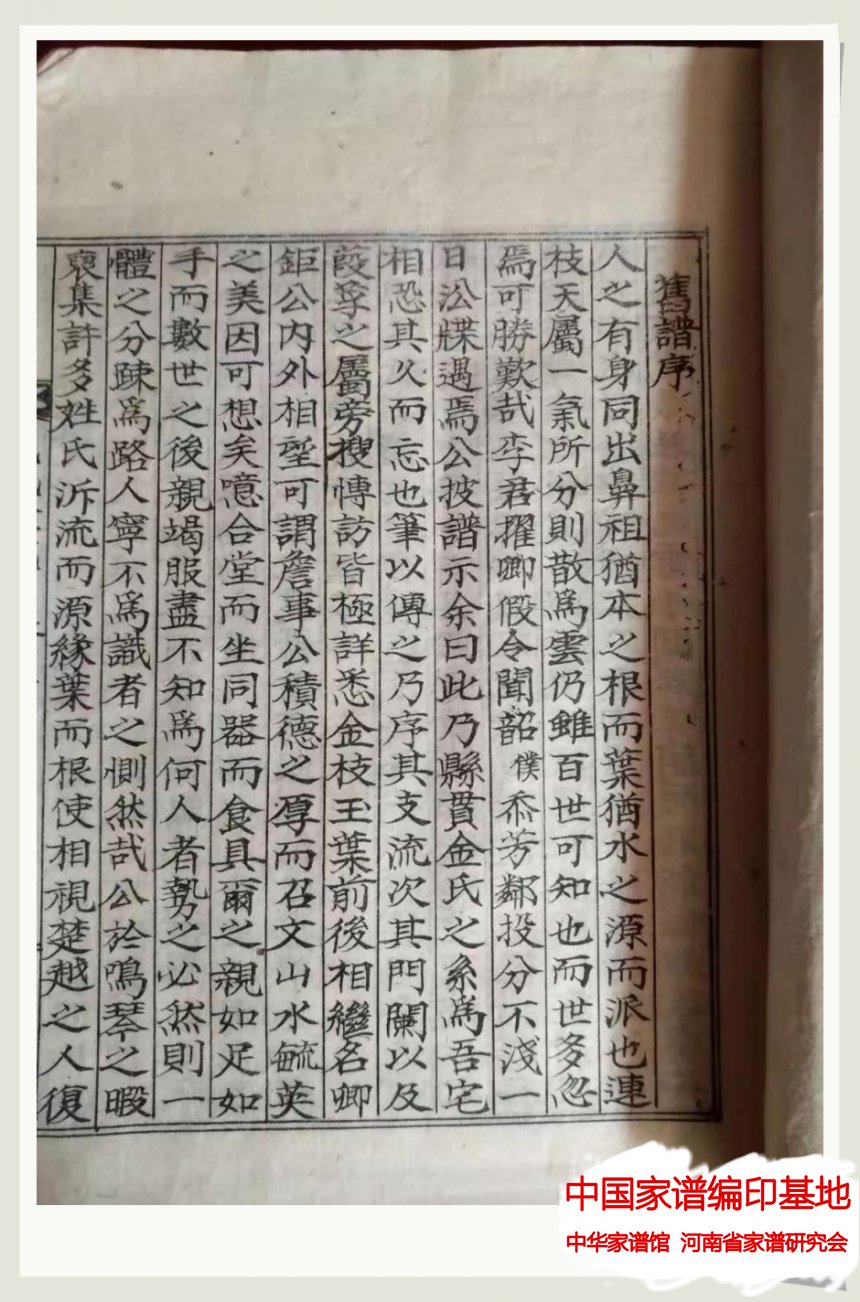 舊譜序
人之有身同出鼻祖猶本之根而葉猶水之源而派也連
枝天屬一氣所分則散爲雲仍雖百世可知也而世多忽
焉可勝歎哉李君擢卿假令聞韶僕忝芳鄰投分不淺一
日公牒過焉公披譜示余曰此乃縣貫金氏之系爲吾宅
相恐其久而忘也筆以傳之乃序其支流次其門闌以及
葭莩之屬旁搜博訪皆極詳悉金枝玉葉前後相繼名卿
鉅公內外相望可謂詹事公積德之厚而召文山水毓英
之美因可想矣噫合堂而坐同器而食具爾之親如足如
手而數世之後親竭服盡不知爲何人者勢之必然則一
體之分疎爲路人寧不爲識者之惻然哉公於鳴琴之暇
裒集許多姓氏泝流而源緣葉而根使相視楚越之人復
中国家谱编印基地
中华家谱馆 河南省家谱研究会